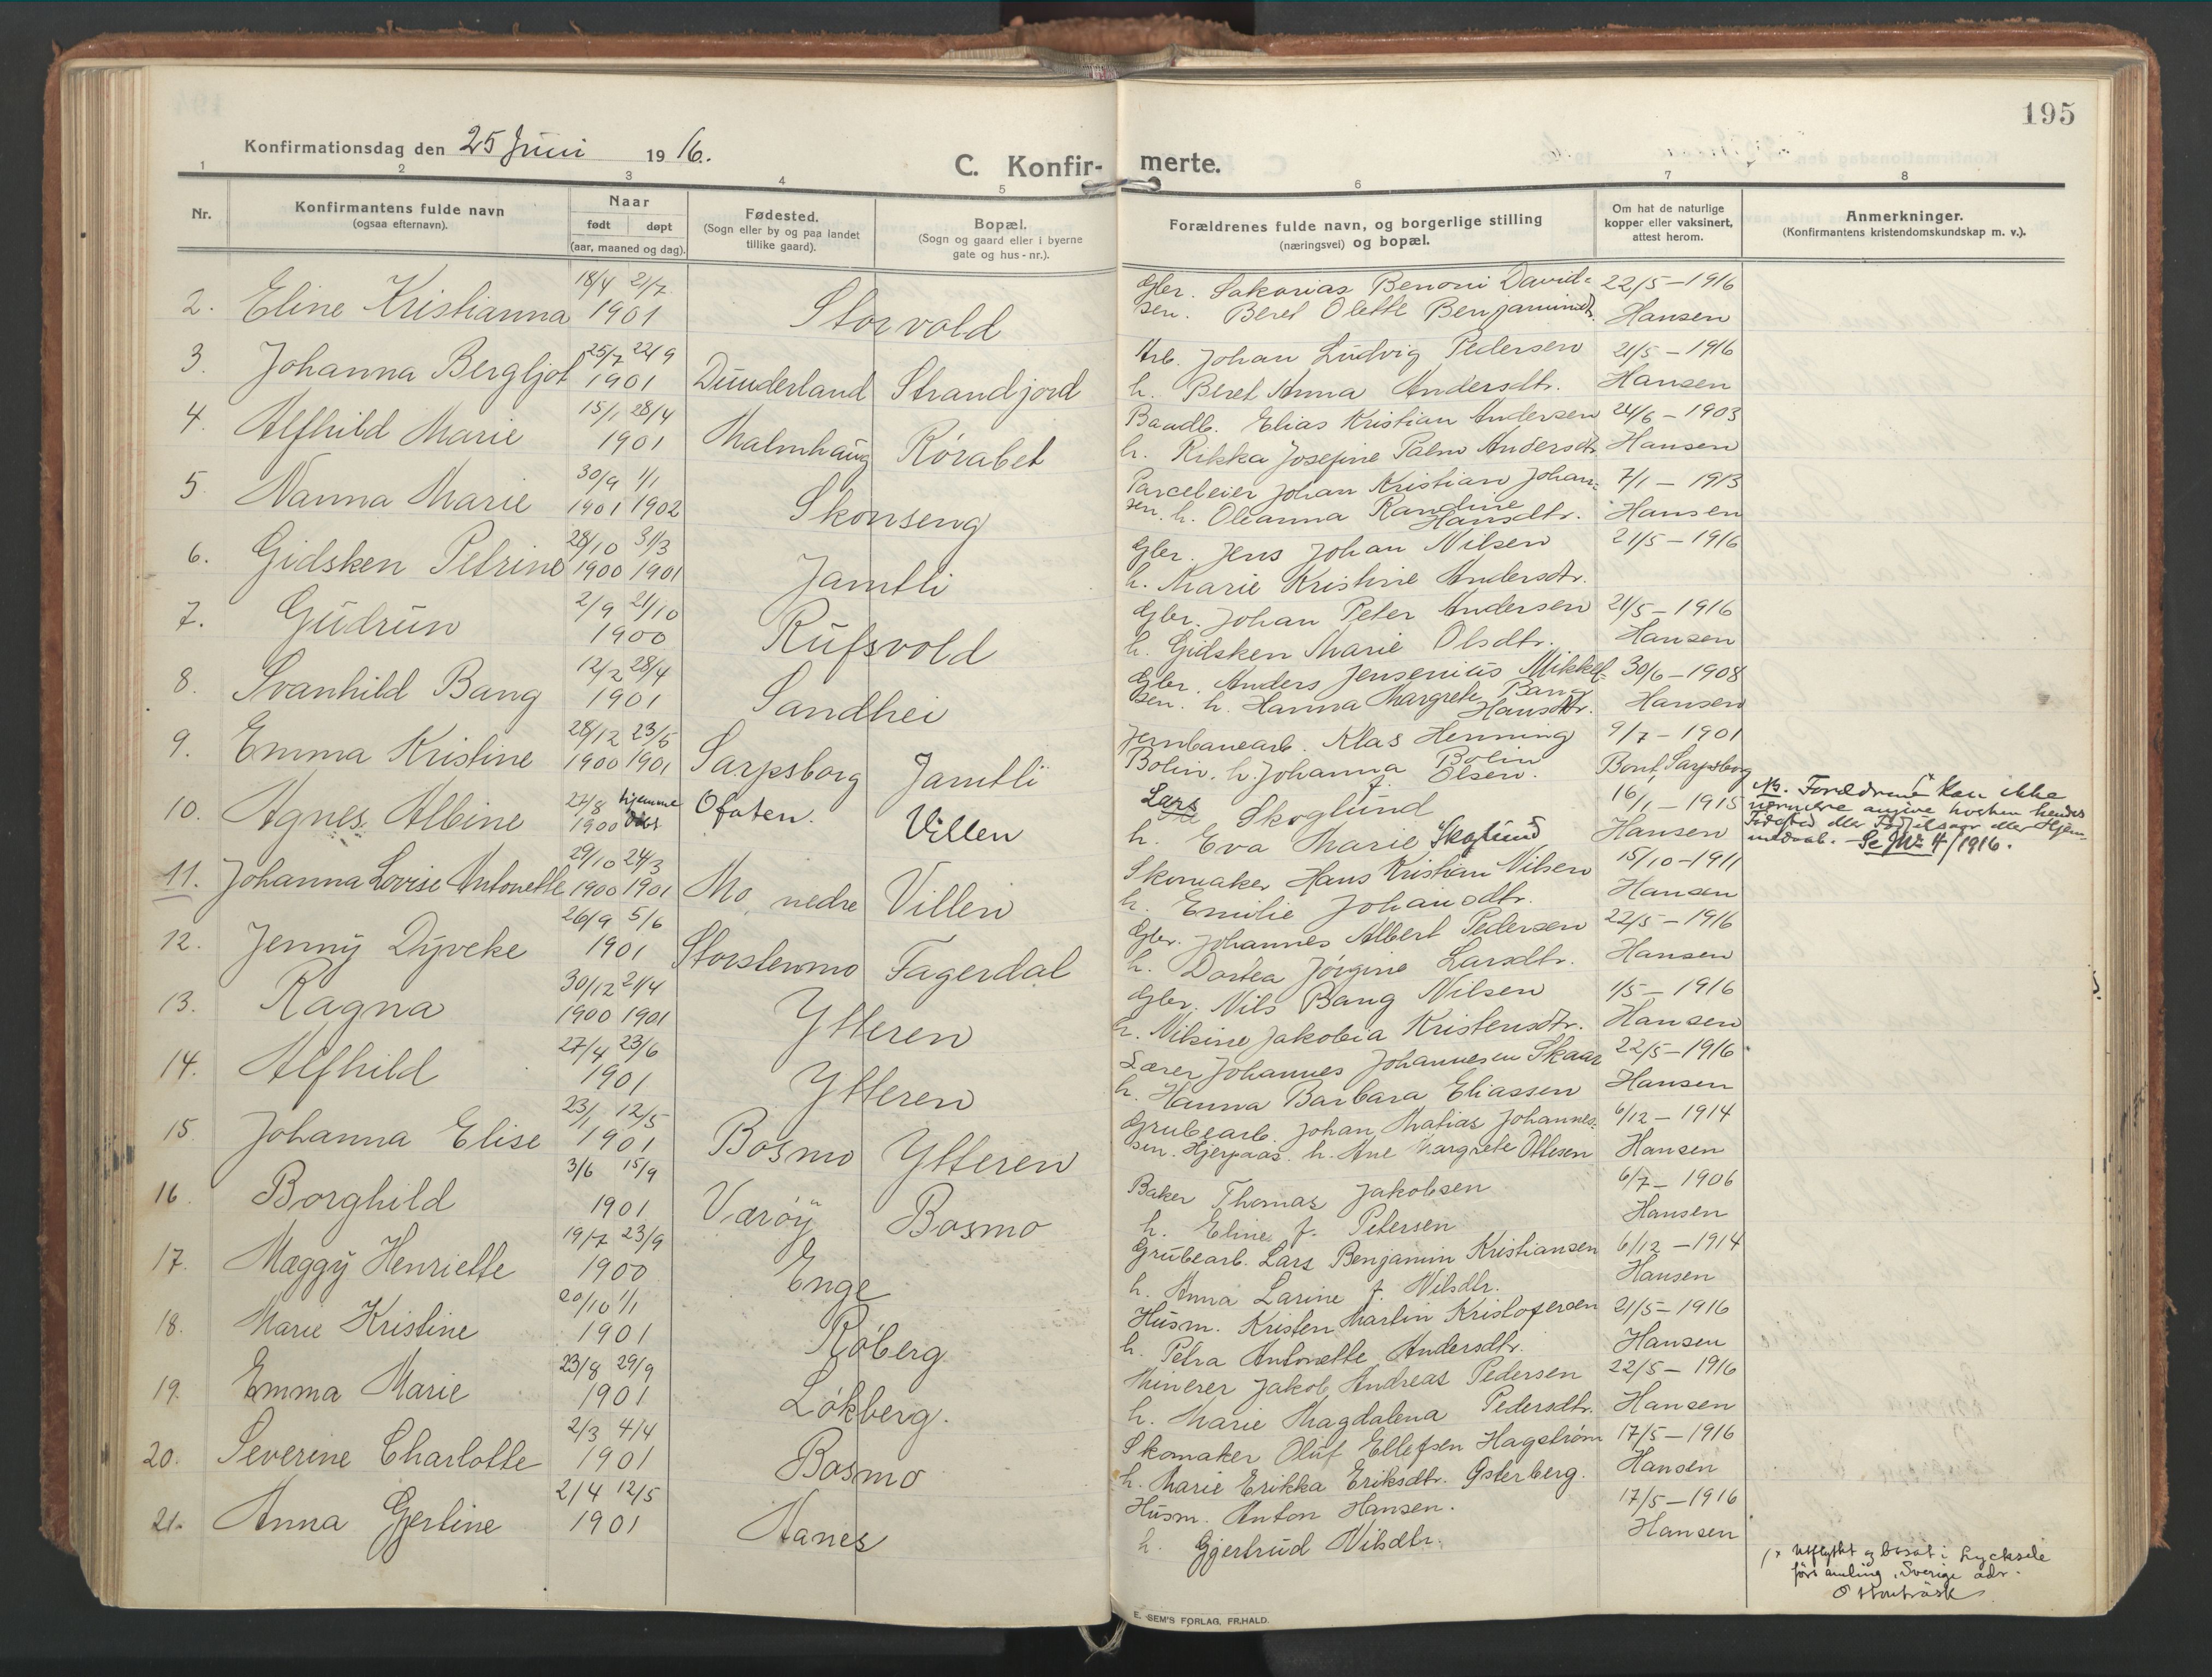 195
Konfirmationsdag den 25 Juni 1916.
C. Konfir- merte.
1 2 3 4 5 6 7 8
Nr.
Konfirmantens fulde navn
(ogsaa efternavn).
Naar
født døpt
(aar, maaned og dag).
Fødested.
(Sogn eller by og paa landet
tillike gaard).
Bopæl.
(Sogn og gaard eller i byerne
gate og hus-nr.).
Forældrenes fulde navn, og borgerlige stilling
(næringsvei) og bopæl.
Om hat de naturlige
kopper eller vaksinert,
attest herom.
Anmerkninger.
(Konfirmantens kristendomskundskap m. v.).
18/4 21/7 Gbr. Sakarias Benoni David- 22/5-1916
2. Eline Kristianna 1901 Storvold sen. Beret Olette Benjaminsdtr. Hansen
25/7 22/9 Arb. Johan Ludvig Pedersen 21/5-1916
3. Johanna Bergljot 1901 Dunderland Strandjord h. Beret Anna Andersdtr. Hansen
15/1 28/4 Baadb. Elias Kristian Andersen 24/6-1903
4. Alfhild Marie 1901 Malmhaug Rørabet h. Rikka Josefine Palm Andersdtr. Hansen
30/9 1/1 Parceleier Johan Kristian Johan- 7/1-1913
5. Nanna Marie 1901 1902 Skonseng sen. h. Oleanna Randine Hansdtr. Hansen
28/10 31/3 Gbr. Jens Johan Nilsen 21/5-1916
6. Gidsken Petrine 1900 1901 Jamtli h. Marie Kristine Andersdtr.
2/9 21/10 Gbr. Johan Peter Andersen 21/5-1916
7. Gudrun 1900 Rufsvold h. Gidsken Marie Olsdtr. Hansen
12/2 28/4 Gbr. Anders Jensenius Mikkel- 30/6-1908
8. Svanhild Bang 1901 Sandhei sen. h. Hanna Margrete Bang Hansdtr. Hansen
28/12 23/5 Jernbanearb. Klas Henning 9/7-1901
9. Emma Kristine 1900 1901 Sarpsborg Jamtli Bolin. h. Johanna Bolin f. Olsen. Sarpsborg
27/8 hjemme Lars Skoglund 16/1-1915
10. Agnes Albine 1900 døbt Ofoten. Villen h. Eva Marie Skoglund Hansen
Nb. Foreldrene kan ikke
nærmere angive hverken hendes
Fødested eller Fødselsaar eller Hjem-
medaab. Se № 4/1916.
29/10 24/3 Skomaker Hans Kristian Nilsen 15/10-1911
11. Johanna Lovise Antonette 1900 1901 Mo, nedre Villen h. Emilie Johansdtr. Hansen
26/9 5/6 Gbr. Johannes Albert Pedersen 22/5-1916
12. Jenny Dyveke 1901 Storstenmo Fagerdal h. Dortea Jørgine Larsdtr. Hansen
30/12 21/4 Gbr. Nils Bang Nilsen 1/5-1916
13. Ragna 1900 1901 Ytteren h. Nilsine Jakobia Kristensdtr. Hansen
27/4 23/6 Lærer Johannes Johannesen Skaar 22/5-1916
14. Alfhild 1901 Ytteren h. Hanna Barbara Eliassen Hansen
23/1 12/5 Grubearb. Johan Matias Johannes- 6/12-1914
15. Johanna Elise 1901 Bosmo Ytteren sen. Hjerpaas. h. Ane Margrete Ottesen Hansen
3/6 15/9 Baker Thomas Jakobsen 6/7-1906
16. Borghild 1901 Værøy Bosmo h. Eline f. Petersen Hansen
19/7 23/9 Grubearb. Lars Benjamin Kristiansen 6/12-1914
17. Mæggy Henriette 1900 Enge h. Anna Larine f. Nilsdtr. Hansen
20/10 1/1 Husm. Kristen Martin Kristofersen 21/5-1916
18. Marie Kristine 1901 Røberg h. Petra Antonette Andersdtr. Hansen
23/8 29/9 Minerer Jakob Andreas Pedersen 22/5-1916
19. Emma Marie 1901 Løkberg. h. Marie Magdalena Pedersdtr. Hansen
2/3 4/4 Skomaker Oluf Ellefsen Hagstrøm 17/5-1916
20. Severine Charlotte 1901 Bosmo h. Marie Erikka Eriksdtr. Østerberg. Hansen
2/4 12/5 Husm. Anton Hansen. 17/5-1916
21. Anna Gjertine 1901 Hanes h. Gjertrud Nilsdtr. Hansen
Utflyttet og bosat i Lycksele
församling, Sverige adr.
E. SEM'S FORLAG, FR.HALD.